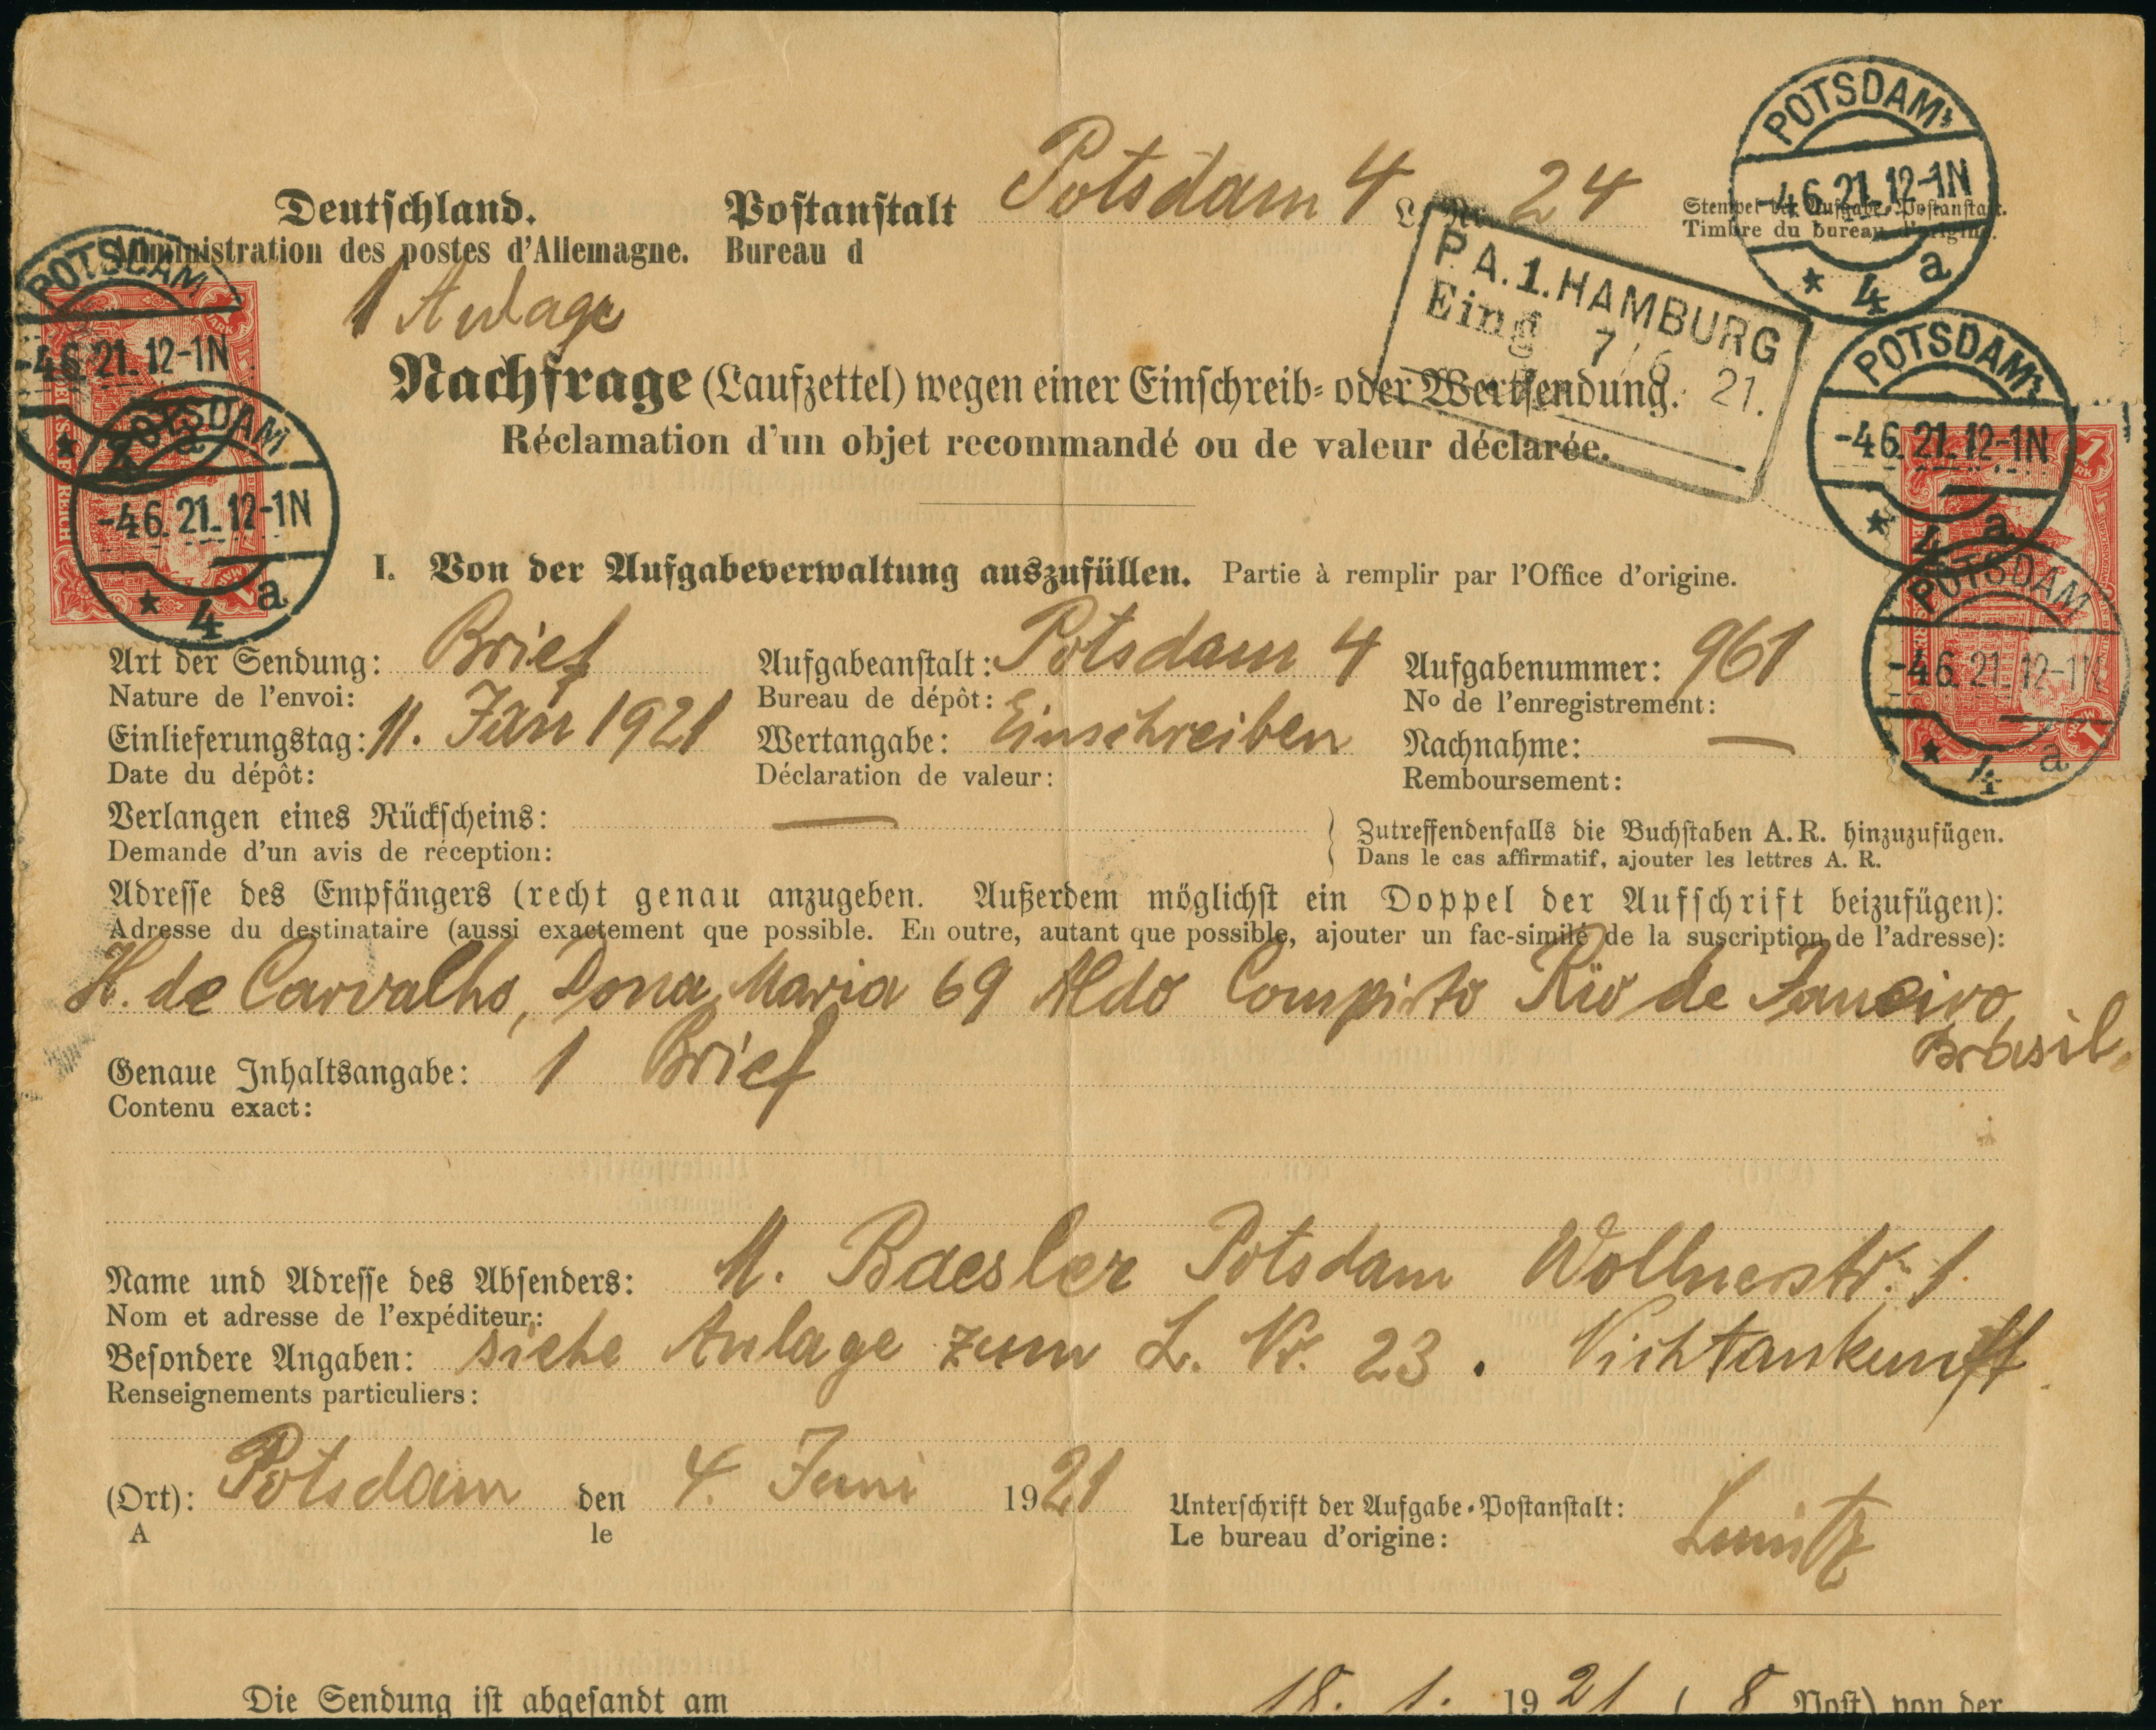 POTSDAM
-4.6.21.12-1N
* 4 a
Deutschland. Postanstalt Potsdam 4 L. Nr. 24 Stempel der Aufgabe-Postanstalt.
Administration des postes d'Allemagne. Bureau d Timbre du bureau d'origine.
1 Anlage
P.A.1.HAMBURG
Eing 7/6 21.
POTSDAM
-4.6.21.12-1N
* 4 a
POTSDAM
-4.6.21.12-1N
* 4 a
Nachfrage (Laufzettel) wegen einer Einschreib- oder Wertsendung.
Réclamation d'un objet recommandé ou de valeur déclarée.
POTSDAM
-4.6.21.12-1N
* 4 a
I. Von der Aufgabeverwaltung auszufüllen. Partie à remplir par l'Office d'origine.
POTSDAM
-4.6.21.12-1N
* 4 a
Art der Sendung: Brief Aufgabeanstalt: Potsdam 4 Aufgabenummer: 961
Nature de l'envoi: Bureau de dépôt: No de l'enregistrement:
Einlieferungstag: 11. Jan 1921 Wertangabe: Einschreiben Nachnahme: —
Date du dépôt: Déclaration de valeur: Remboursement:
Verlangen eines Rückscheins: — } Zutreffendenfalls die Buchstaben A. R. hinzuzufügen.
Demande d'un avis de réception: Dans le cas affirmatif, ajouter les lettres A. R.
Adresse des Empfängers (recht genau anzugeben. Außerdem möglichst ein Doppel der Aufschrift beizufügen):
Adresse du destinataire (aussi exactement que possible. En outre, autant que possible, ajouter un fac-similé de la suscription de l'adresse):
H. de Carvalho, Dona Maria 69 Aldo Compisto Rio de Janeiro
Brasil.
Genaue Inhaltsangabe: 1 Brief
Contenu exact:
Name und Adresse des Absenders: M. Baesler Potsdam Wollnerstr. 1
Nom et adresse de l'expéditeur:
Besondere Angaben: siehe Anlage zum L. Nr. 23. Nichtankunft
Renseignements particuliers:
(Ort): Potsdam den 4. Juni 1921 Unterschrift der Aufgabe-Postanstalt:
A le Le bureau d'origine:
Die Sendung ist abgesandt am 18. 1. 1921 ( 8 Post) von der